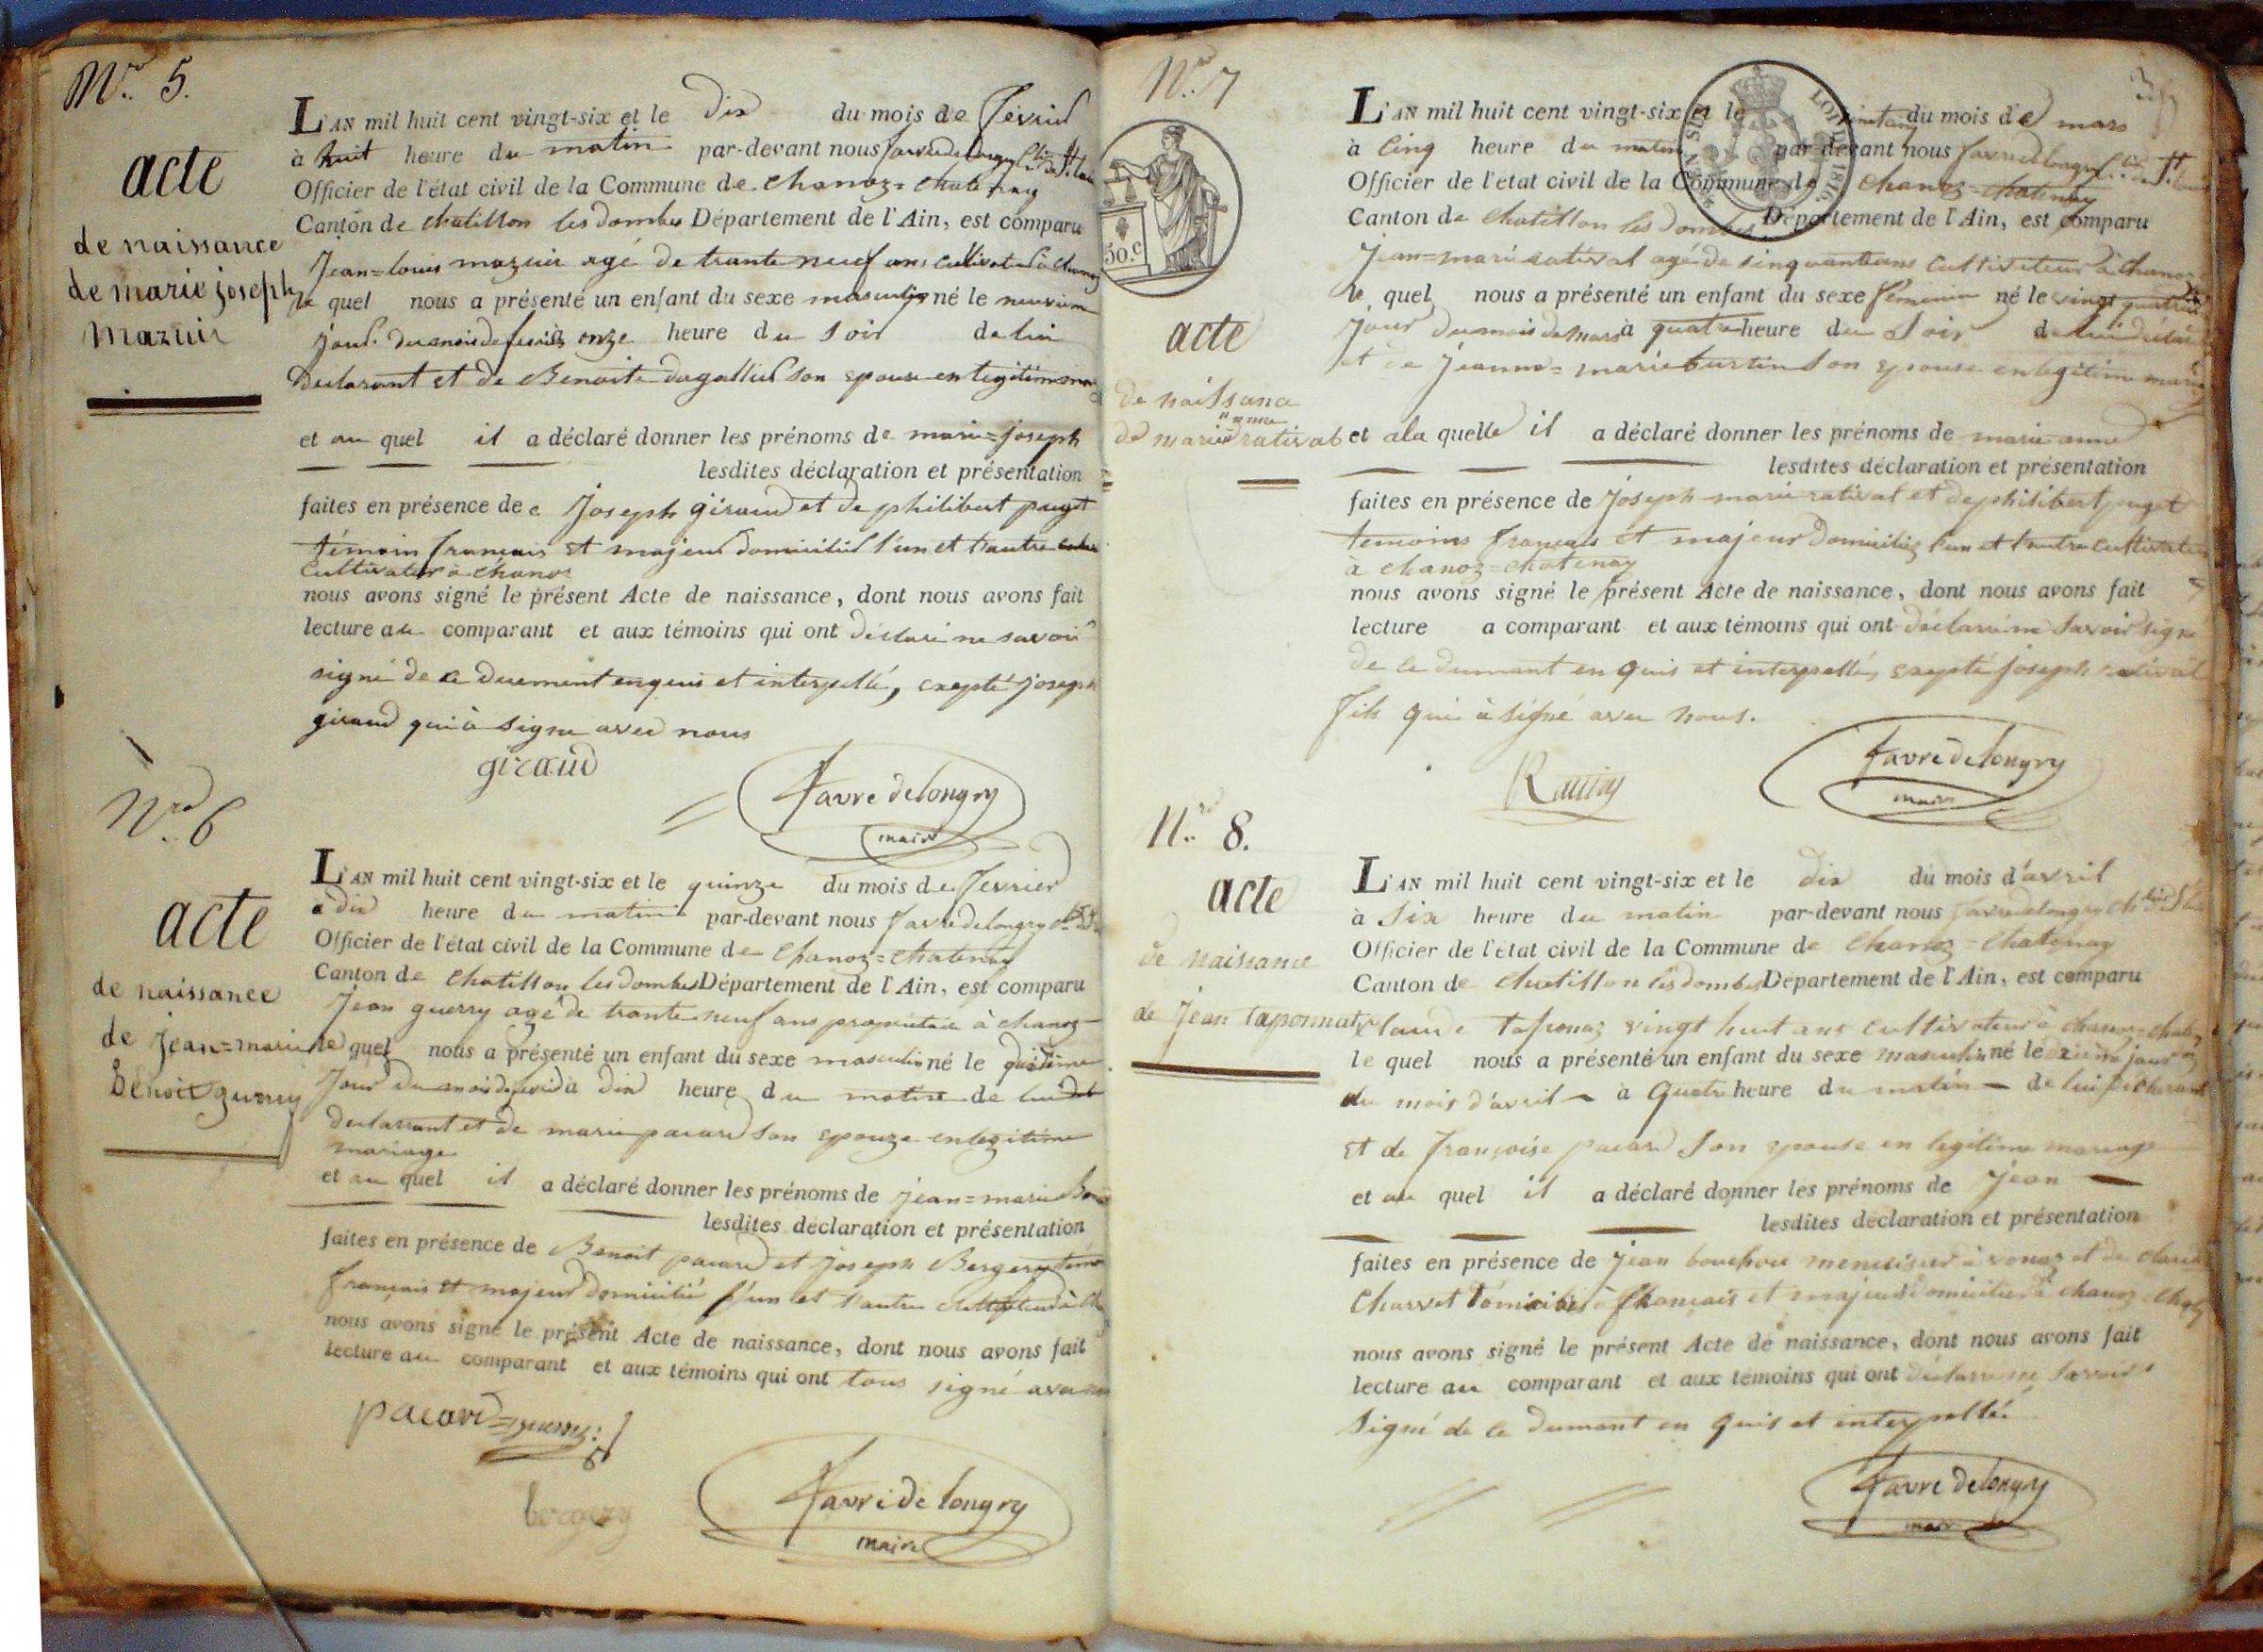 Nro 5.
acte
de naissance
de marie joseph
mazuir
L'AN mil huit cent vingt-six et le dix du mois de fevrier
à huit heure du matin par-devant nous favre de longry
Officier de l'état civil de la Commune de chanoz=chatenay
Canton de chatillon les dombes Département de l'Ain, est comparu
Jean=louis mazuir agé de trante neuf ans cultivateur à chanoz
le quel nous a présenté un enfant du sexe masculin né le neuvieme
jour du mois de fevrier à onze heure du soir de lui
declarant et de Benoite dagallier son epouse en legitime
et au quel il a déclaré donner les prénoms de marie=joseph
lesdites déclaration et présentation
faites en présence de Joseph giraud et de philibert puget
témoin français et majeur domicilié l'un et l'autre
cultivateur à chanoz
nous avons signé le présent Acte de naissance, dont nous avons fait
lecture au comparant et aux témoins qui ont déclaré ne savoir
signé de ce duement enquis et interpellé, exepté joseph
giraud qui à signe avec nous
giraud
favre de longry
maire
Nro 6
acte
de naissance
de jean=marie
Benoit guerry
L'AN mil huit cent vingt-six et le quinze du mois de fevrier
à dix heure du matin par-devant nous favre de longry
Officier de l'état civil de la Commune de chanoz=chatenay
Canton de chatillon les dombes Département de l'Ain, est comparu
Jean guerry agé de trante neuf ans propriétaire à chanoz
le quel nous a présenté un enfant du sexe masculin né le
jour du mois de fevrier à dix heure du matin de lui
declarant et de marie pacard son epouze en legitime
mariage
et au quel il a déclaré donner les prénoms de jean=marie
lesdites déclaration et présentation
faites en présence de Benoit pacard et joseph Bergery
français et majeur domicilié l'un et l'autre cultivateur à
nous avons signé le présent Acte de naissance, dont nous avons fait
lecture au comparant et aux témoins qui ont tous signé avec
pacard=guerry
bergery
favre de longry
maire
Nro 7
50.C
acte
de naissance
anne
de marie rativat
L'AN mil huit cent vingt-six et le du mois de mars
à cinq heure du matin par-devant nous favre de longry
Officier de l'état civil de la Commune de chanoz=chatenay
Canton de chatillon les dombes Département de l'Ain, est comparu
Jean=marie rativat agé de sinquante ans cultivateur à chanoz
le quel nous a présenté un enfant du sexe feminin né le vingt quatrieme
jour du mois de mars à quatre heure du soir de lui declarant
et de jeanne=marie burtin son epouse en legitime mariage
et a la quelle il a déclaré donner les prénoms de marie anne
lesdites déclaration et présentation
faites en présence de joseph marie rativat et de philibert puget
temoins français et majeur domiciliez l'un et l'autre cultivateur
a chanoz=chatenay
nous avons signé le présent Acte de naissance, dont nous avons fait
lecture a comparant et aux témoins qui ont déclaré ne savoir signé
de ce dument enquis et interpellé, exepté joseph rativat
fils qui à signé avec nous.
favre de longry
maire
Nro 8.
acte
de naissance
de jean taponnat
L'AN mil huit cent vingt-six et le dix du mois d'avril
à six heure du matin par-devant nous favre de longry
Officier de l'état civil de la Commune de chanoz=chatenay
Canton de chatillon les dombes Département de l'Ain, est comparu
claude vingt huit ans cultivateur à chanoz=chatenay
le quel nous a présenté un enfant du sexe masculin né le dixieme jour
du mois d'avril à quatre heure du matin de lui declarant
et de françoise pacard son epouse en legitime mariage
et au quel il a déclaré donner les prénoms de jean
lesdites déclaration et présentation
faites en présence de jean bouchou menuisier à vonnas et de claude
charvet témoins français et majeur domicilié à chanoz=chatenay
nous avons signé le présent Acte de naissance, dont nous avons fait
lecture au comparant et aux témoins qui ont déclaré ne savoir
signé de ce dument enquis et interpellé
favre de longry
maire